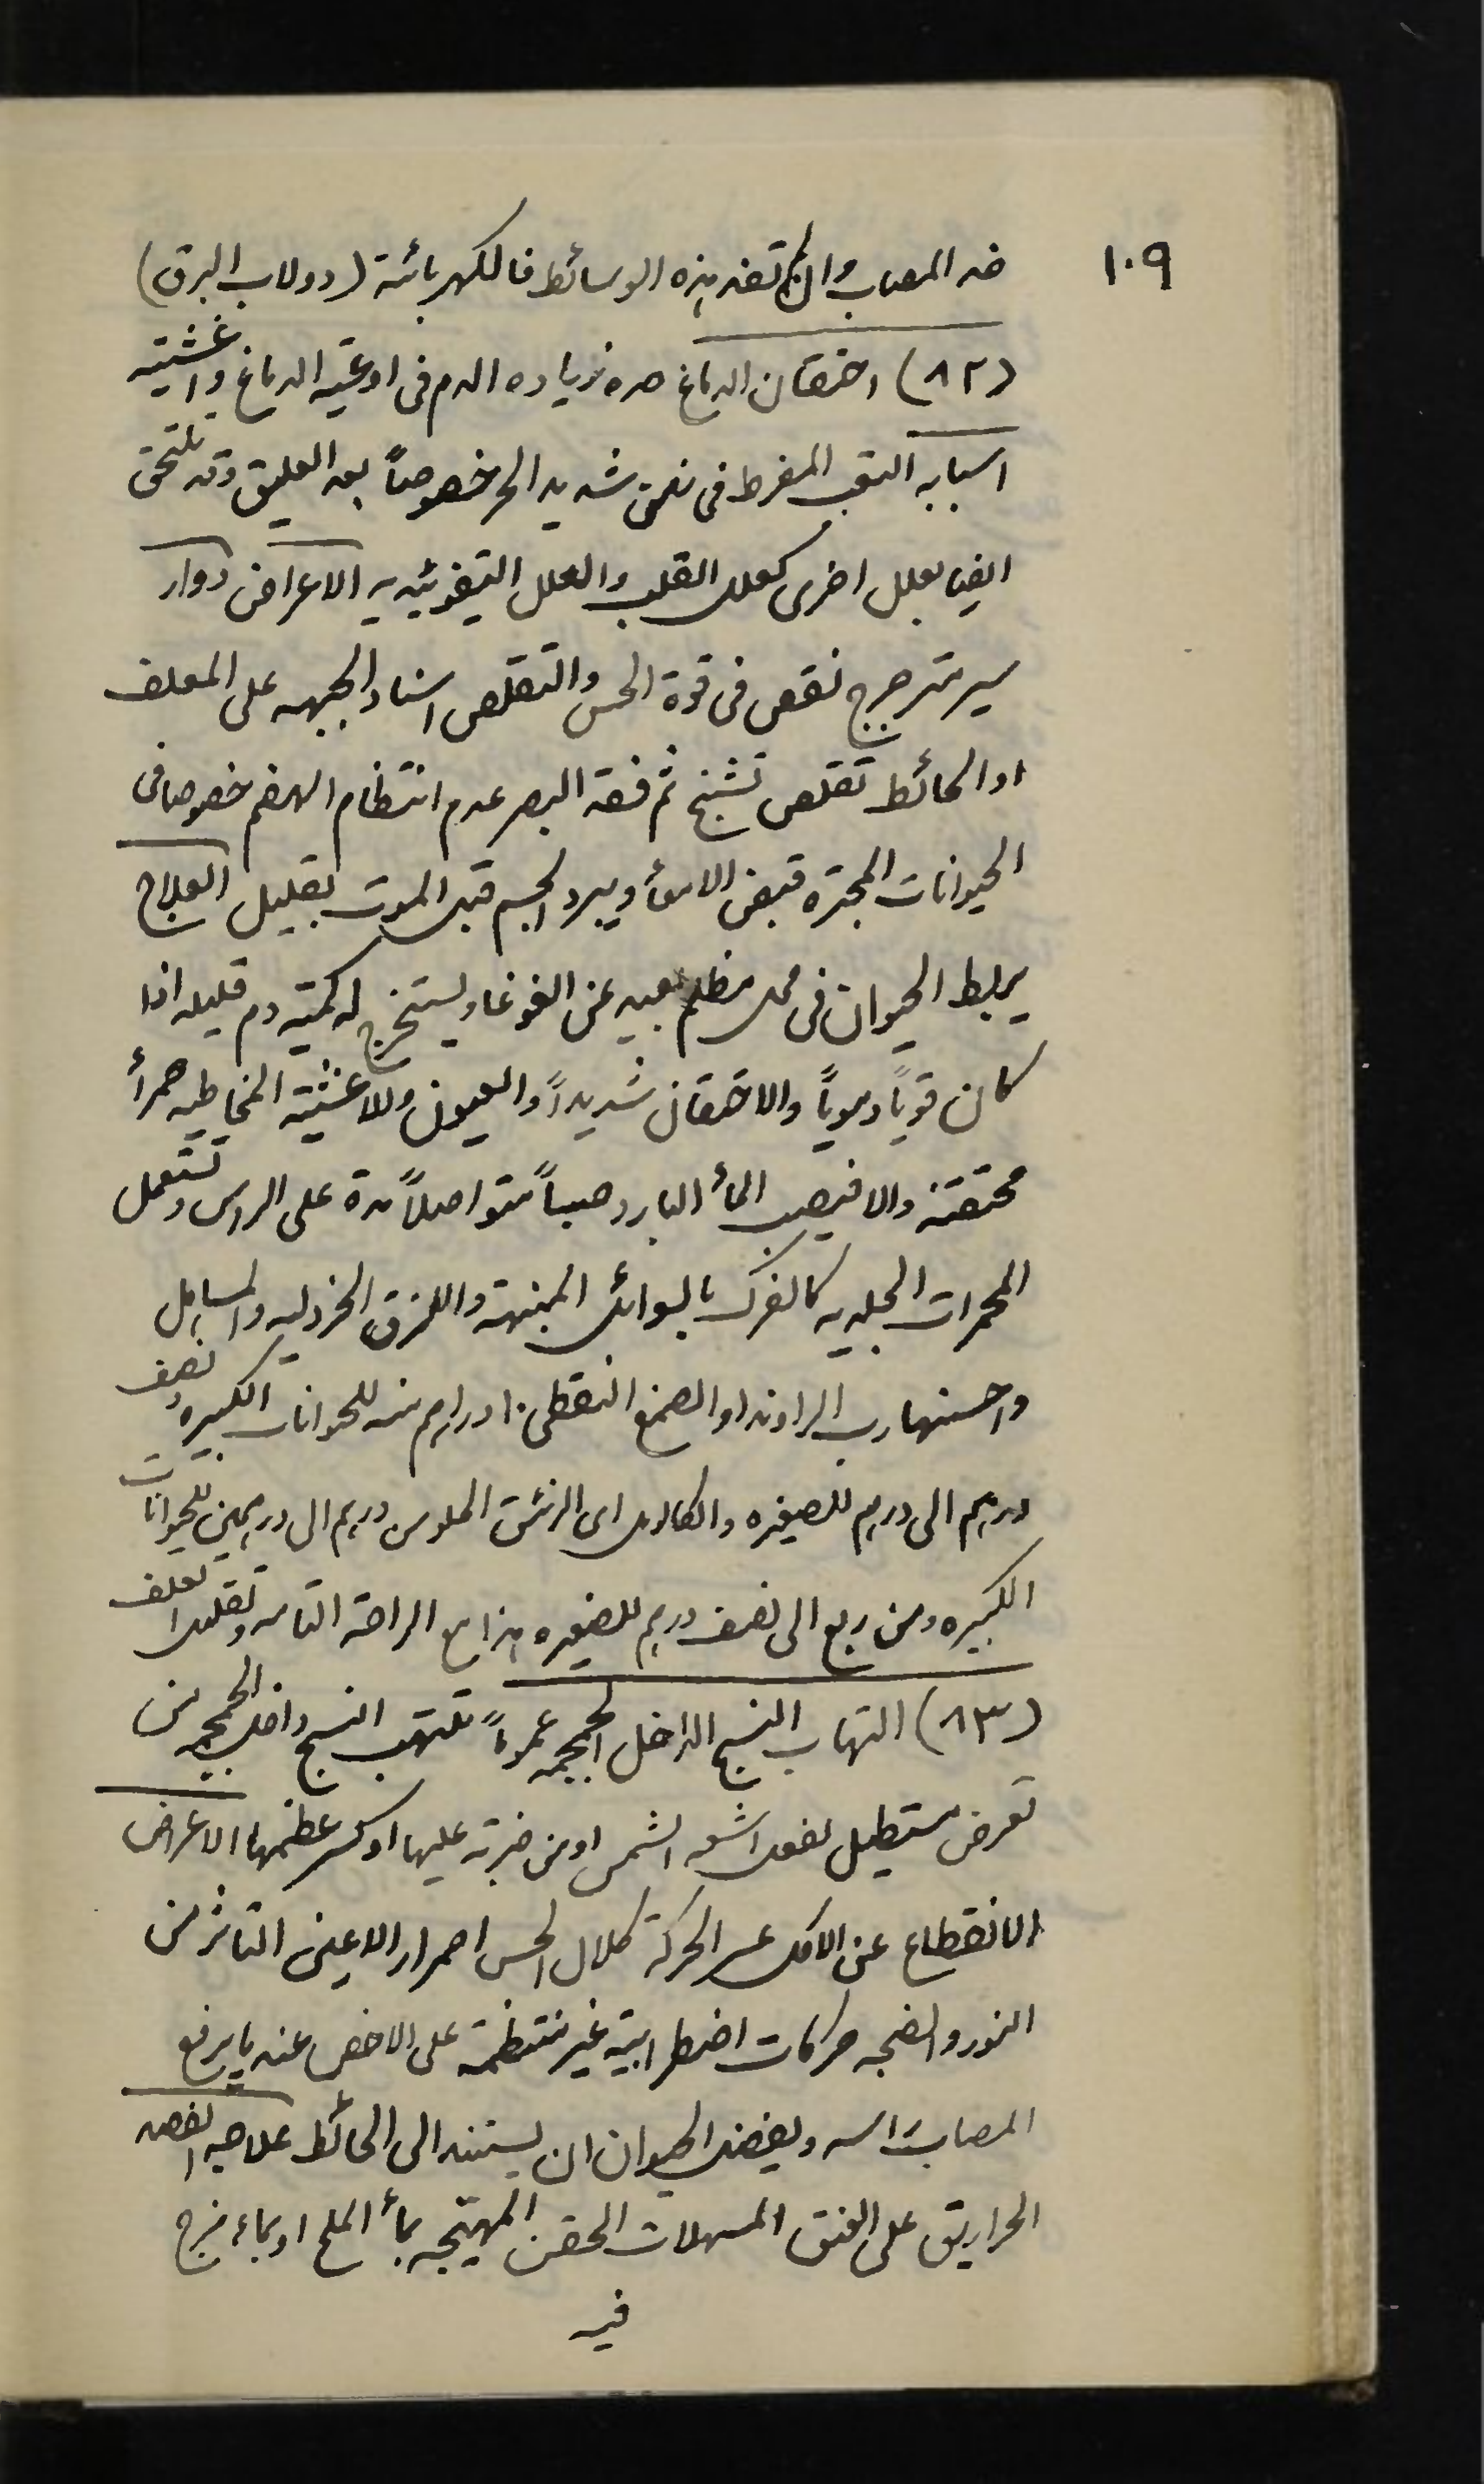 ١٠٩
ضد المصاب وان لم تفد هذه الوسائط فالكهربائية (دولاب البرق)
(٨٢) احتقان الدماغ هو زياده الدم فى اوعيته الدماغ واغشيته
اسبابه التعب المفرط فى نفس شديد الحر خصوصاً بعد العليق وقد تلتحق
ايضا بعلل اخرى كعلل القلب والعلل التيفوئيديه الاعراض دوار
سير مترجرج نقص فى قوة الحس والتقلص اسناد الجبهه على المعلف
او الحائط تقلص تشنج ثم فقد البصر عدم انتظام الهضم خصوصا فى
الحيوانات المجتره قبض الامعأ ويبرد الجسم قبل الموت بقليل العلاج
يربط الحيوان فى محل مظلم بعيد عن الغوغا ويستخرج له كمية دم قليله اذا
كان قوياً دموياً والاحتقان شديداً والعيون والاغشية المخاطيه حمرأ
محتقنة والا فيصب المأ البارد صباً متواصلاً مدة على الراس وتستعمل
المحمرات الجلديه كالفرك بالسوائل المنبهة واللزق الخردليه والمساهل
واحسنها رب الراوند او الصمغ النقطى ١٠ دراهم منه للحوانات الكبيره ونصف
درهم الى درهم للصغيره والكالومل اى الزئبق الحلو من درهم الى درهمين للحيوانات
الكبيره ومن ربع الى نصف درهم للصغيره هذا مع الراحة التامه وتقليل العلف
(٨٣) التهاب النسج الداخل الجمجمه عموماً تلتهب النسج داخل الجمجمه من
تعرض مستطيل لفعل اشعه الشمس او من ضربة عليها او كسر عظمها الاعراض
الانقطاع عن الاكل عسر الحركة كلال الحس احمرار الاعين التاثر من
النور والضجه حركات اضطرابية غير منتظمة على الاخص عند ما يرفع
المصاب راسه ويفضل الحيوان ان يستند الى الحائط علاجه الفصد
الحراريق على العنق المسهلات الحقن المهيجه بمأ الملح او بماء مزج
فيه